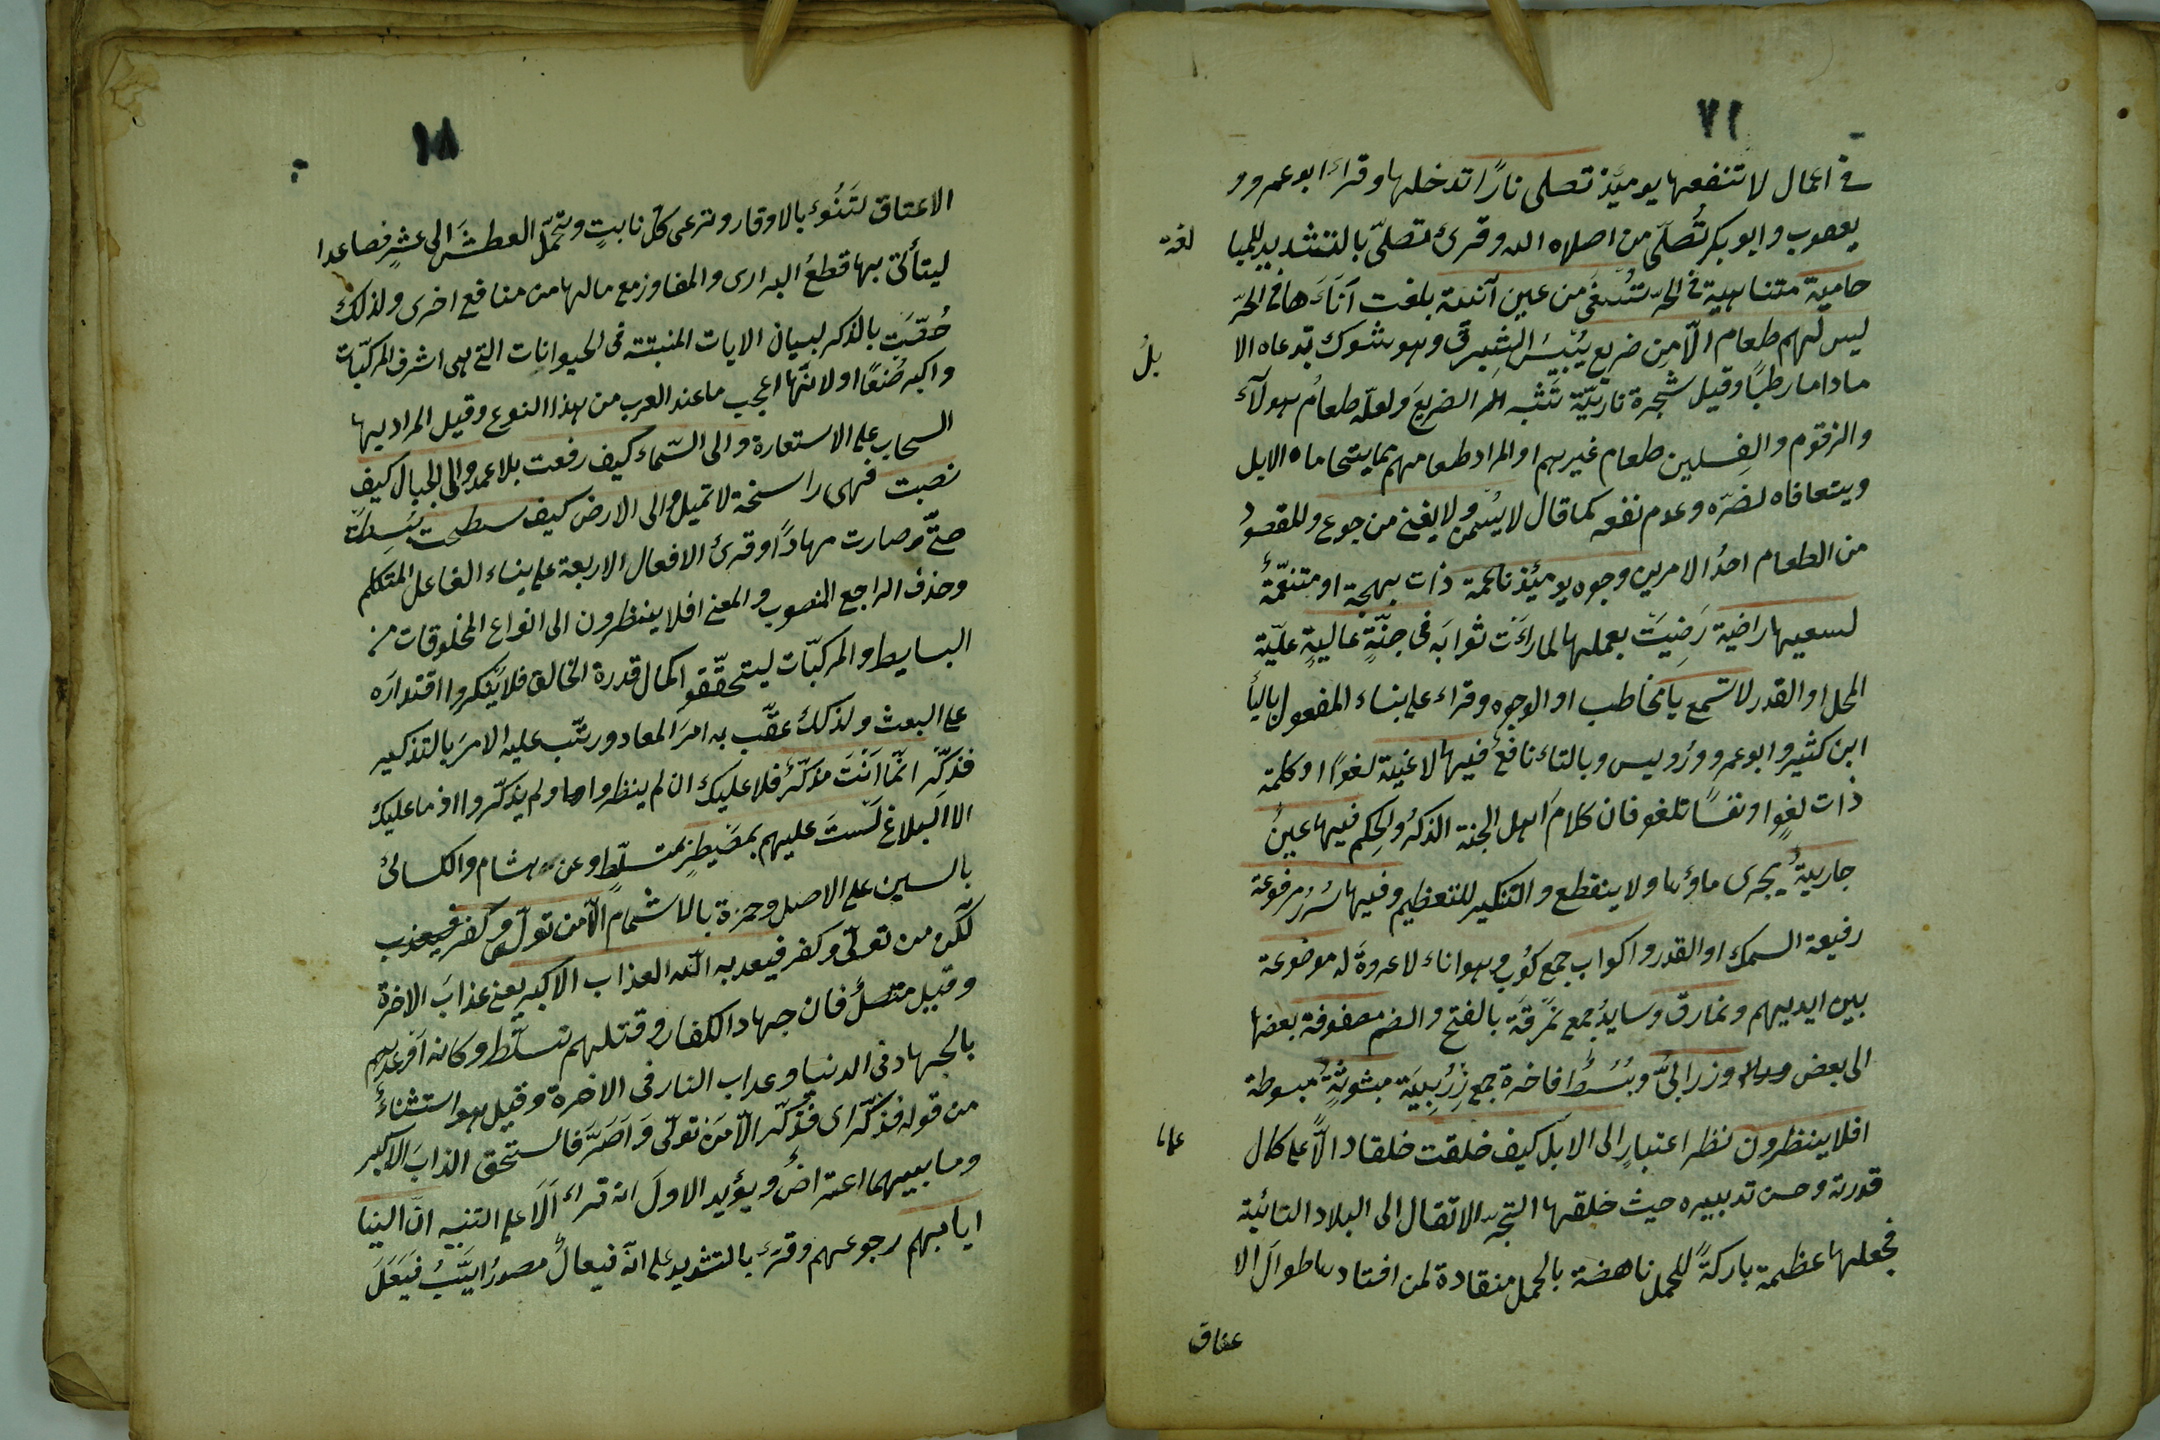 ٧١
في اعمال لا تنفعها يومئذ تصلى نارًا تدخلها وقراء ابو عمرو و
يعصوب وابو بكر تُصلَى من اصلاه الله وقرئ تصلّى بالتشديد للمبا
لغة
حامية متناهية في الحرّ تُسقَى من عين آنية بلغت آناءَها في الحرّ
ليس لهم طعام الّا من ضريع يَبِيسُ الشِبرق وهو شوك ترعاه الا
بلُ
ما دام رطبًا وقيل شجرة ناريّة تَشبه الضريعَ ولعلّه طعامُ هولآء
والزقوم والغسلين طعام غيرهم او المراد طعامهم مما يتحاماه الابل
ويتعافاه لضرّه وعدم نفعه كما قال لا يُسمن ولا يغنى من جوع وللمقصوُد
من الطعام احدُ الامرين وجوه يومئذ ناعمة ذات بهجة او متنعّمةٌ
لسعيها راضية رَضِيَت بعملها لما راَءَت ثوابَه في جنّةٍ عاليةٍ عليّة
المحل او القدر لا تسمع يا مخاطب او الوجوه وقراء على بناء المفعول بالياَ
ابن كثير وابو عمرو ورُويس وبالتاء نافعٌ فيها لاغية لغوًا او كلمة
ذات لغوٍ او نفسًا تلغو فان كلامَ اهل الجنة الذكرُ والحِكم فيها عينٌ
جاريةٌ يجرى ماؤها ولا ينقطع والتنكير للتعظيم وفيها سُرُر مرفوعة
رفيعة السمك او القدر واكواب جمع كُوب وهو اناء لا عروةَ له موضوعة
بين ايديهم ونمارق وسايدُ جمع نمرقَة بالفتح والضم مصفوفة بعضها
الى بعض وزرابىُّ وبُسُطٌ فاخرة جمع زِربِيَة مبثوثةٌ مبسوطة
افلا ينظرون نظر اعتبارٍ الى الابل كيف خلقت خلقا دالًّا على كمال
قدرته وحسن تدبيره حيث خلقها لتجرّ الاثقال الى البلاد النائية
فجعلها عظيمة باركةً للحمل ناهضة بالحمل منقادة لمن اقتادها طوالَ الا
عناق
١٨
الاعتاق لتَنُوء بالاوقار وترعى كلّ نابتٍ وتحمّلَ العطشَ الى عشرٍ فصاعدا
ليتأتّى بها قطعُ البرارى والمفاوز مع مالها من منافع اخرى ولذلك
خُصّت بالذكر لبيان الايات المنبثة فى الحيوانات التى هى اشرف المركّبات
واكبر صُنعًا او لانّها اعجب ما عند العرب من هذا النوع وقيل المراد بها
السحاب على الاستعارة والى السّماء كيف رفعت بلا عمد والى الجبال كيف
نصبت فهى راسخة لا تميل والى الارض كيف سطحت بُسِطَت
حتّى صارت مهادًا وقرئ الافعال الاربعة على بناء الفاعل المتكلم
وحذف الراجع المنصوب والمعنى افلا ينظرون الى انواع المخلوقات من
البسايط والمركبّات ليتحقّقوا كمال قدرة الخالق فلا ينكروا اقتدارَه
على البعث ولذلك عقّب به امرَ المعاد ورتّب عليه الامرَ بالتذكير
فذكّر انّما اَنتَ مذكّرٌ فلا عليك ان لم ينظروا ولم يذكّروا اذ ما عليك
الا البلاغ لَستَ عليهم بمصَيطرٍ بمتسلّطٍ وعن هشام والكسائى
بالسين على الاصل وحمزة بالاشمام الّا من تولّى وكفر فيعذب
لكن من تولّى وكفر فيعذبه الله العذاب الاكبر يعنى عذابَ الاخرة
وقيل متصلٌ فان جهاد الكفار وقتلهم تسلّط وكانه اوعدهم
بالجهاد فى الدنيا وعذاب النار فى الاخرة وقيل هو استثناءٌ
من قوله فذكّر اى فذكّر الّا مَن تولّى وَاَصَرَّ فاستحق الذابَ الاكبر
وما بينهما اعتراضٌ ويؤيد الاولَ انه قراء اَلَا على التنبيه انّ الينا
ايابهم رجوعهم وقرء بالتشديد على انّه فيعالٌ مصدرُ اَيّبَ فَيعَلَ